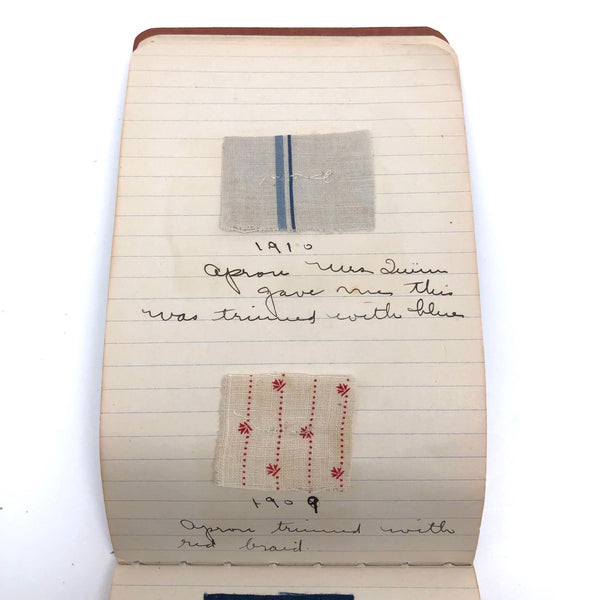 1910
apron Mrs Quinn
gave me this
was trimmed with blue
1909
apron trimmed with
red braid.